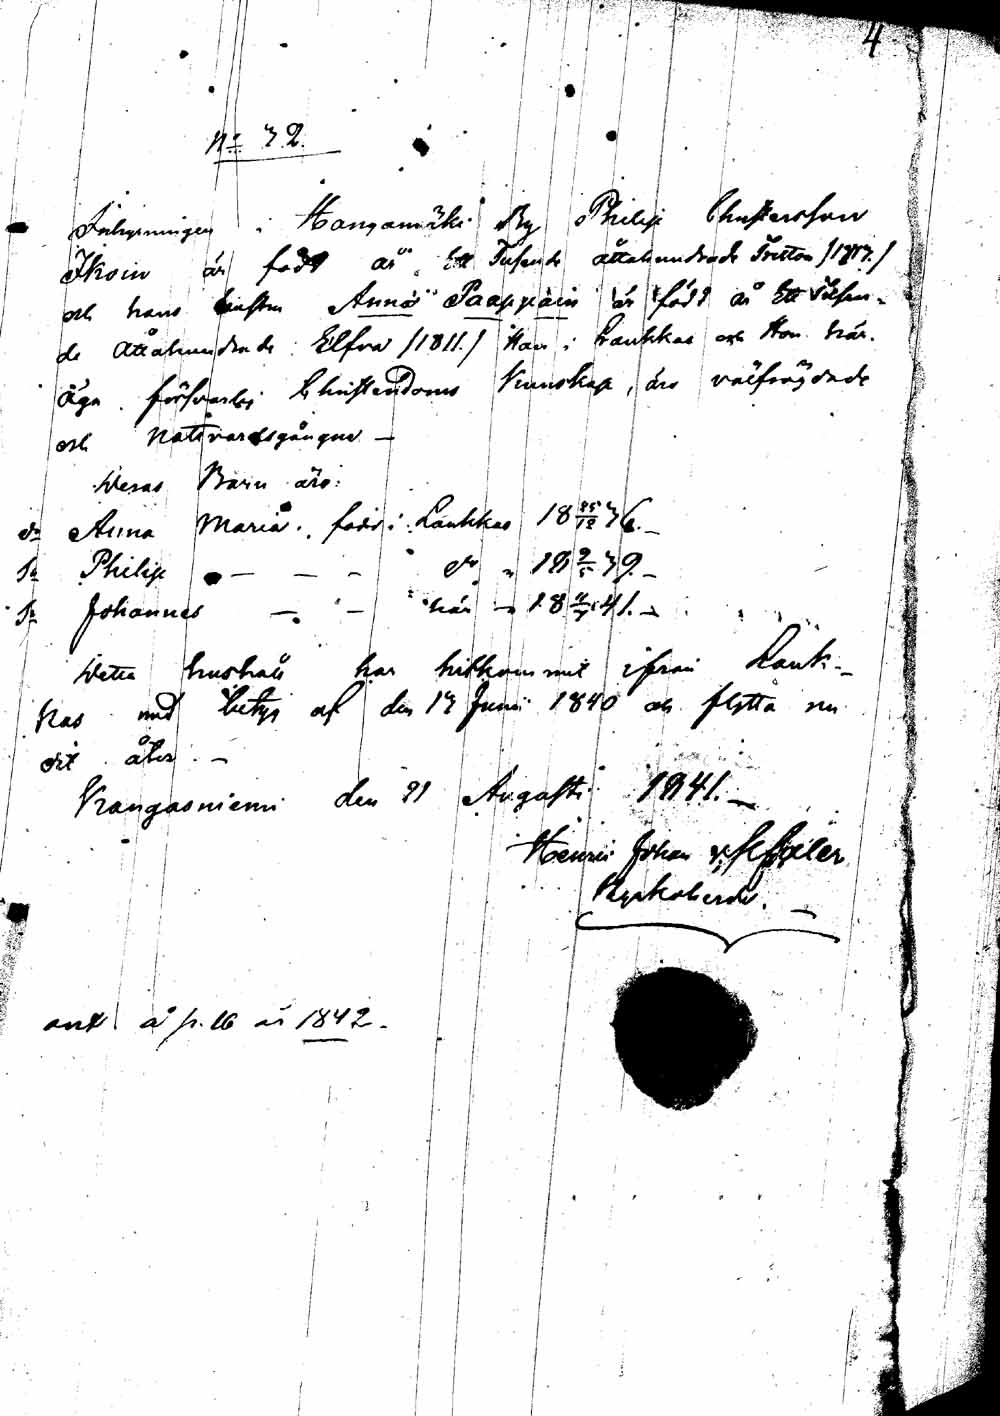 4
No 32.
Inhysningen i Hangamäki By Philip Christersson
Ikoin är född år Ett Tusende åttahundrade Tretton /1813./
och hans hustru Anna Paappain är född år Ett Tusen-
de Åttahundrade Elfva /1811./ Han i Laukkas och Hon här.
äga försvarlig Christendoms Kunskap, äro välfräjdade
och Nattvardsgångne —
Deras Barn äro:
Dr Anna Maria, född i Laukkas 18 25/12 36. —
Sn Philip — — — do " 18 9/5 39. —
Sn Johannes — — här — 18 4/7 41. —
Detta hushåll har hitkommit ifrån Lauk-
kas med betyg af den 14 Junii 1840 och flytta nu
dit åter. —
Kangasniemi den 21 Augusti 1841. —
Henric Johan
Kyrkoherde. —
ant å p. 16 år 1842.